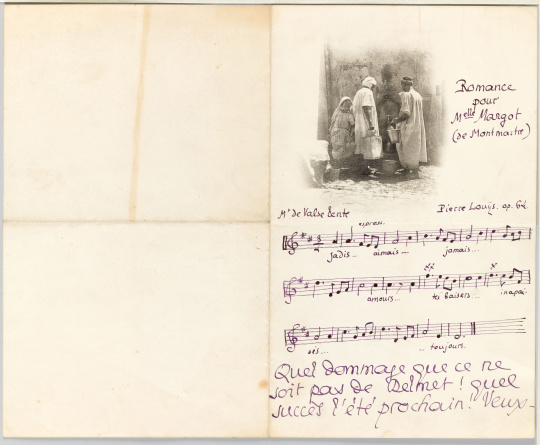 Romance
pour
Melle Margot
(de Montmartre)
Mt de Valse Lente
Pierre Louÿs. op. 62.
espress.
jadis... aimais... jamais...
amours... tes baisers... inapai-
sés... ... toujours.
Quel dommage que ce ne
soit pas de Delmet ! quel
succès l'été prochain ! Veux-